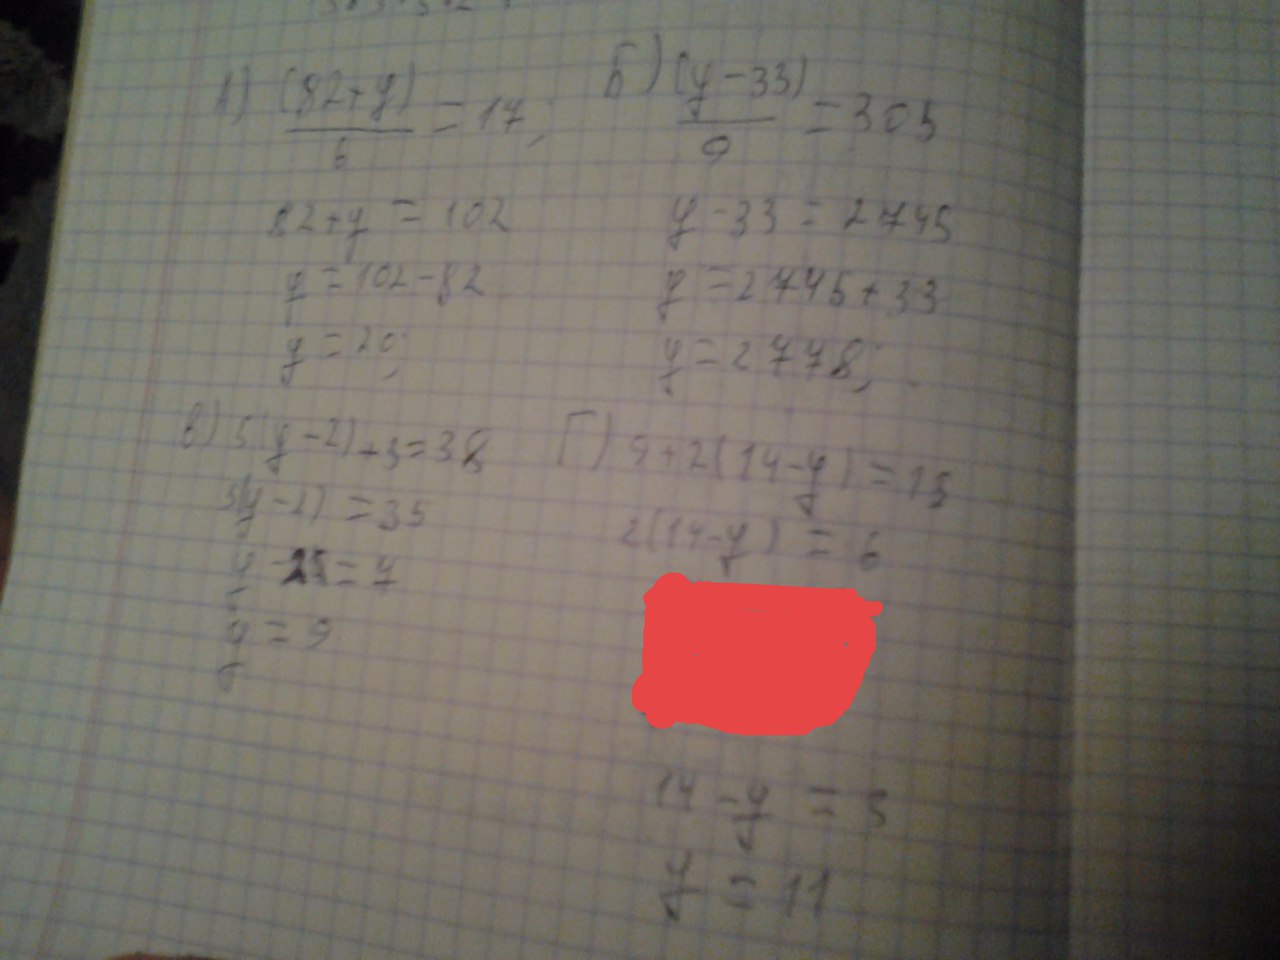 А) (82+y)/6 = 17;
82+y = 102
y = 102-82
y = 20;
Б) (y-33)/9 = 305
y-33 = 2745
y = 2745+33
y = 2778;
В) 5(y-2)+3=38
5(y-2) = 35
y - = 7
y = 9
Г) 9+2(14-y) = 15
2(14-y) = 6
14-y = 3
y = 11